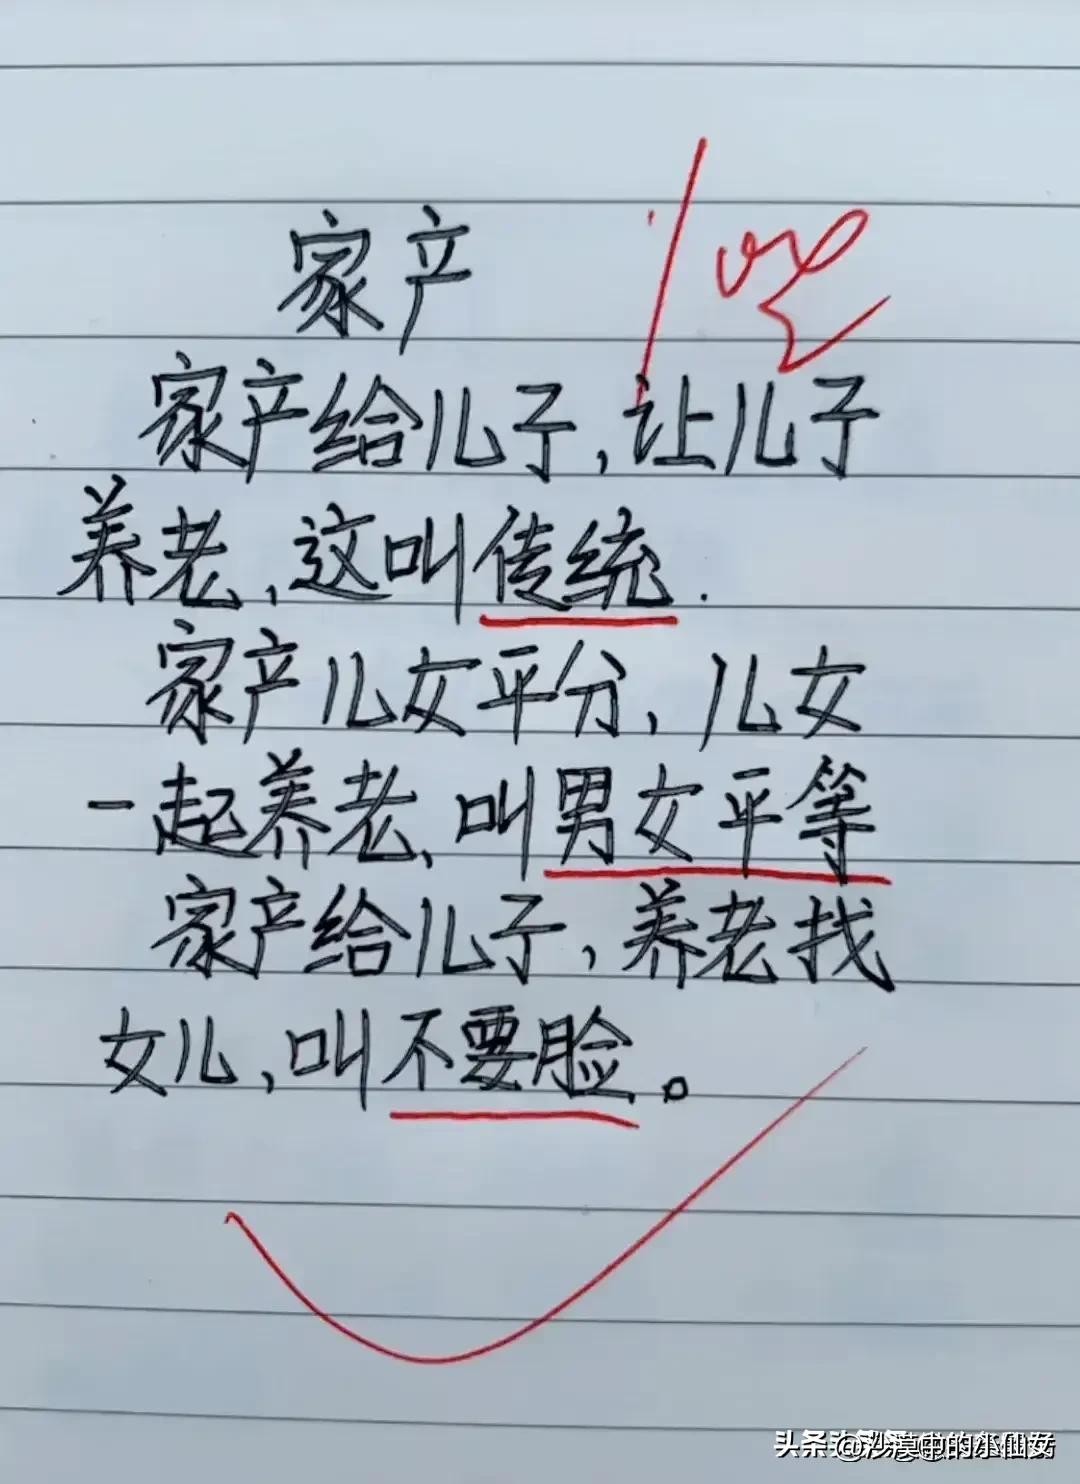 家产
家产给儿子,让儿子
养老,这叫传统.
家产儿女平分,儿女
一起养老,叫男女平等
家产给儿子,养老找
女儿,叫不要脸。